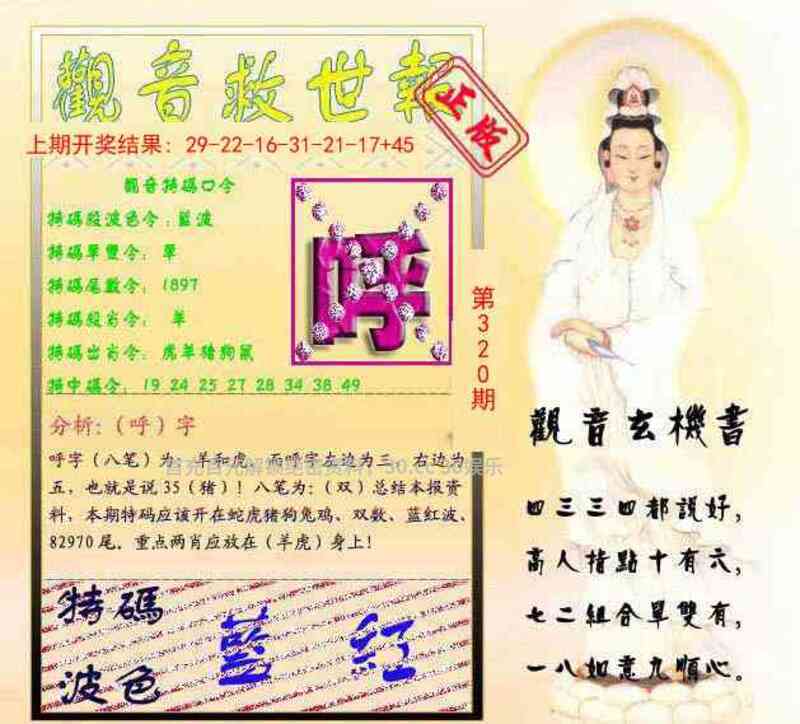 觀音救世報
正版
上期开奖结果：29-22-16-31-21-17+45
觀音特碼口令
特碼段波色令：藍波
特碼單雙令：單
特碼尾數令：1897
特碼段肖令：羊
特碼出肖令：虎羊猪狗鼠
特中碼令：19 24 25 27 28 34 38 49
呼
第320期
分析：（呼）字
呼字（八笔）为：羊和虎。而呼字左边为三，右边为
五，也就是说35（猪）！八笔为：（双）总结本报资
料，本期特码应该开在蛇虎猪狗兔鸡、双数、蓝红波、
82970尾。重点两肖应放在（羊虎）身上！
特碼
波色
藍 紅
觀音玄機書
四三三四都說好，
高人指點十有六，
七二組合單雙有，
一八如意九順心。